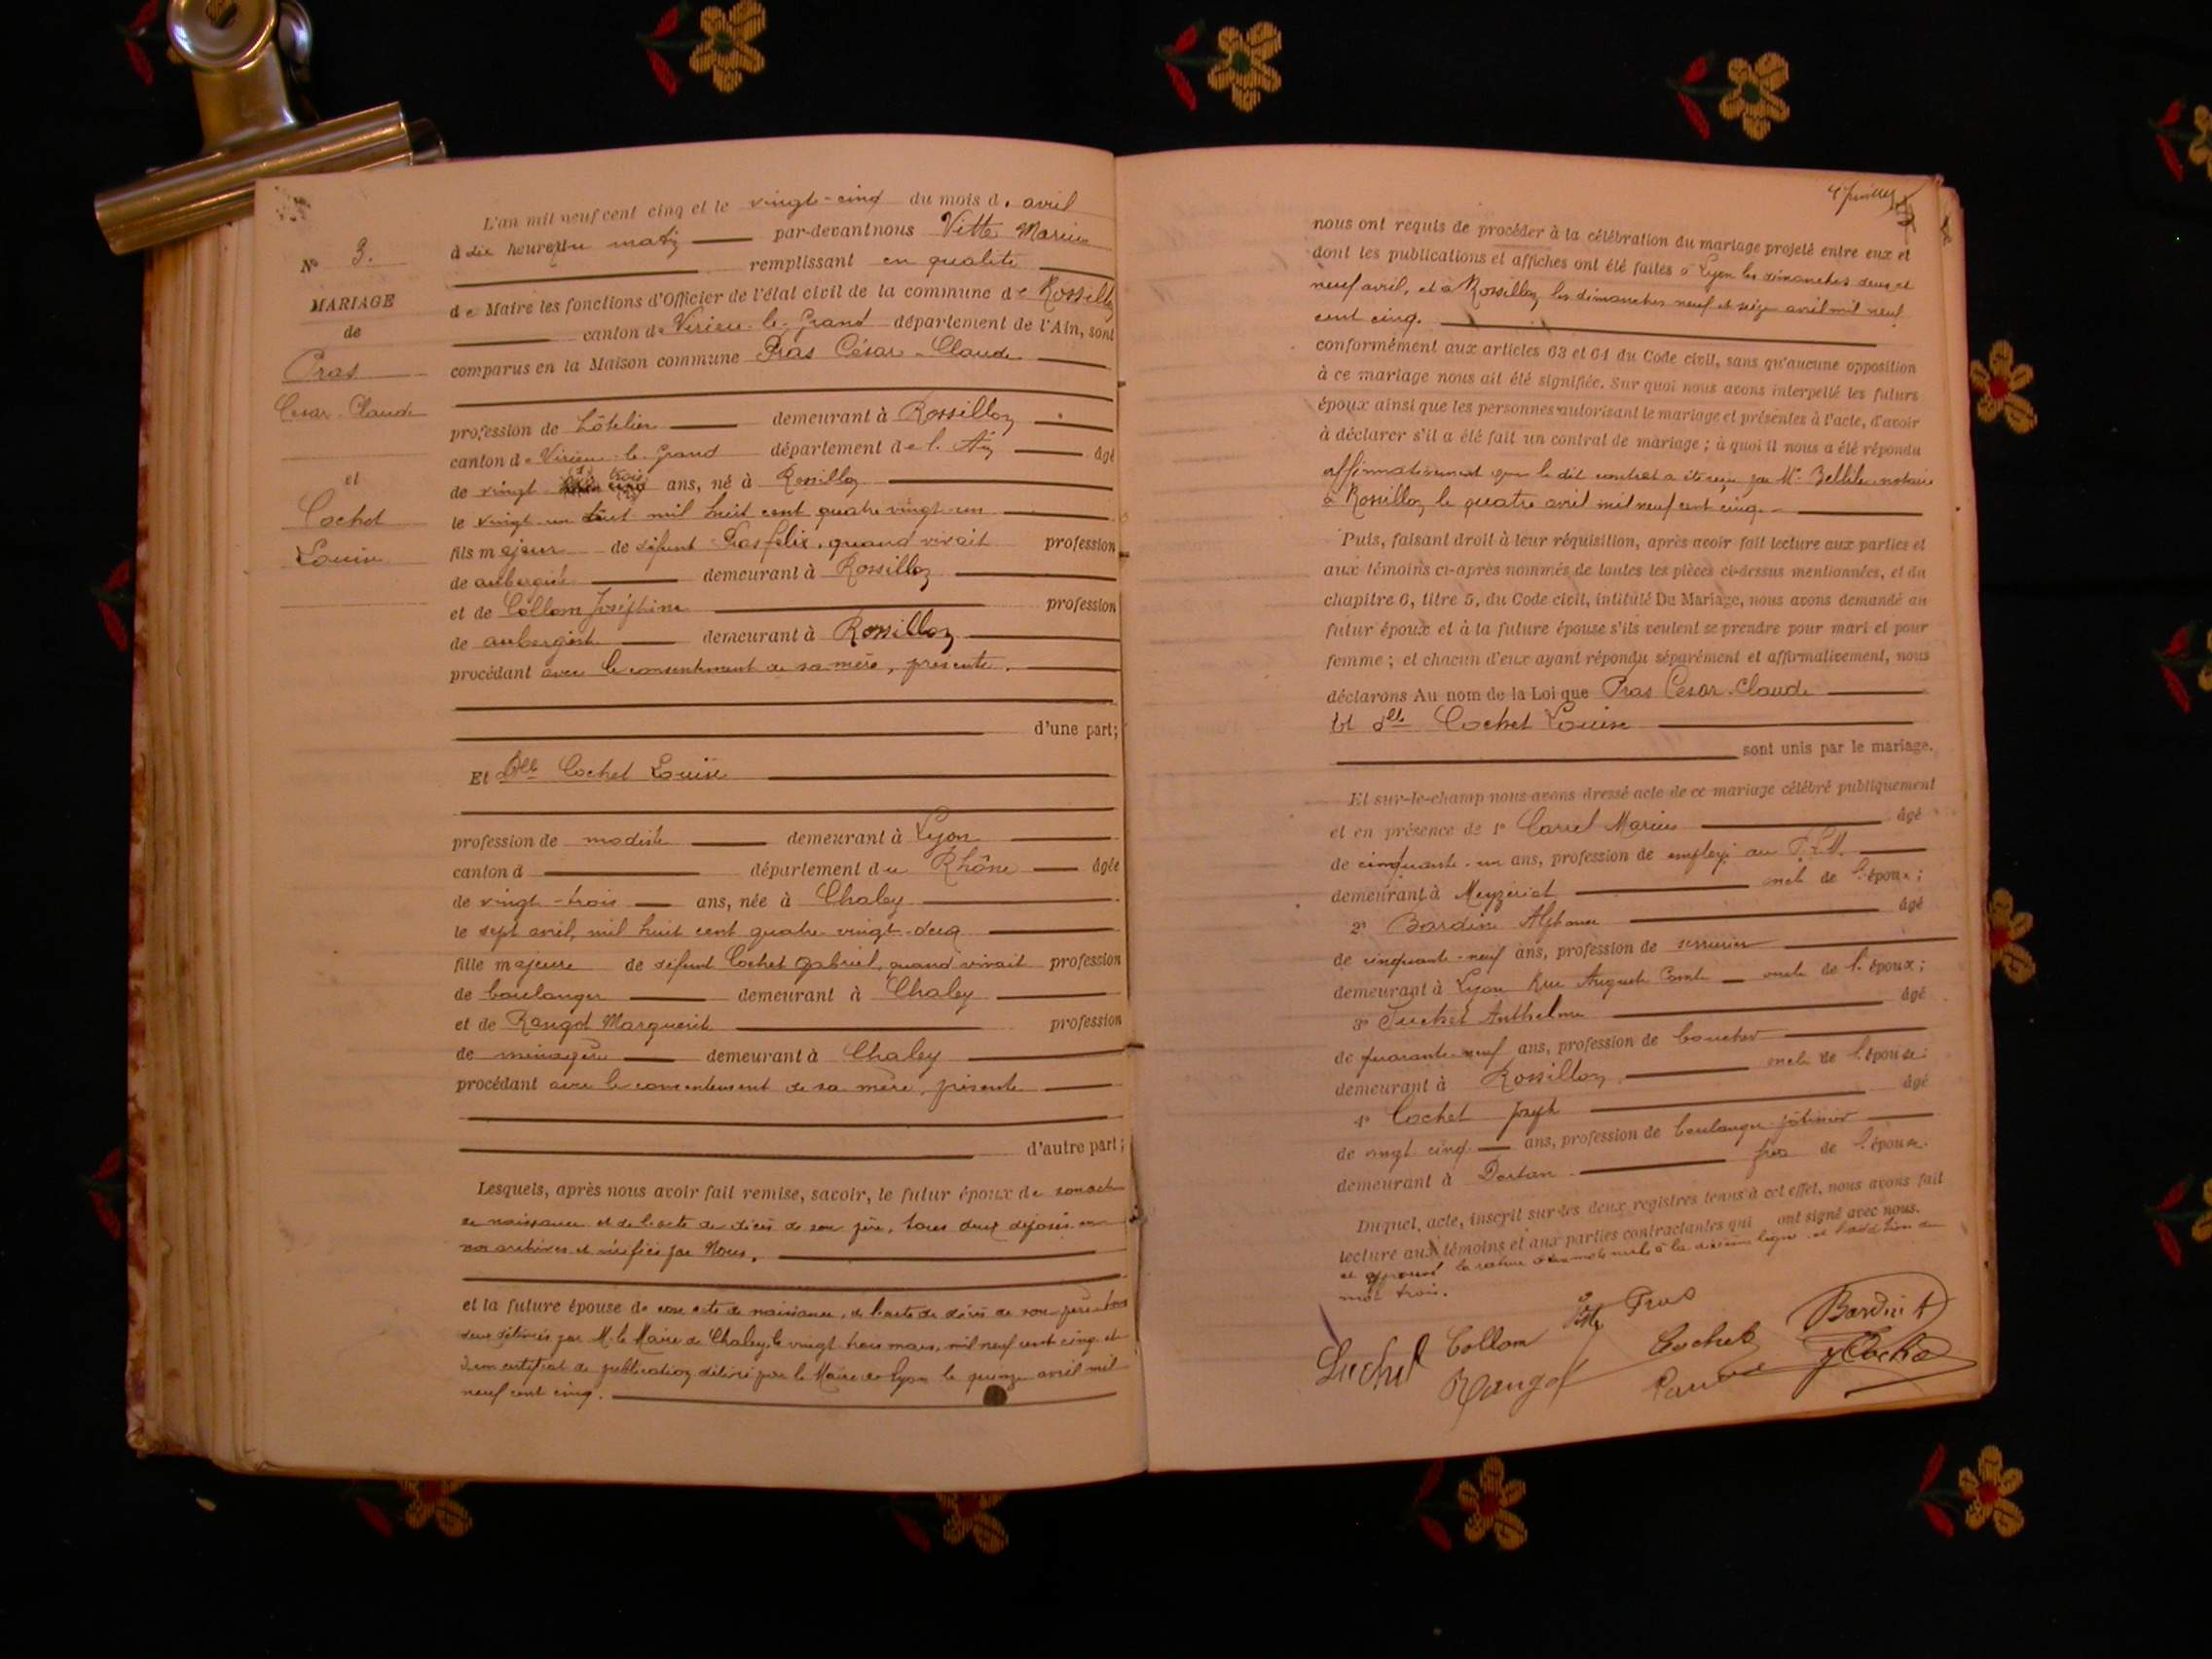 N° 3.
MARIAGE
de
Pras
César-Claude
et
Cochet
Louise
L'an mil neuf cent cinq et le vingt-cinq du mois d' avril
à dix heures du matin par-devant nous Vitte Marius
remplissant en qualité
de Maire les fonctions d'Officier de l'état civil de la commune de Rossillon
canton de Virieu-le-Grand département de l'Ain, sont
comparus en la Maison commune Pras César-Claude
profession de hôtelier demeurant à Rossillon
canton de Virieu-le-Grand département de l'Ain âgé
de vingt trois ans, né à Rossillon
le vingt-un août mil huit cent quatre vingt-un
fils majeur de défunt Pras félix, quand vivait profession
de aubergiste demeurant à Rossillon
et de Collom Joséphine profession
de aubergiste demeurant à Rossillon
procédant avec le consentement de sa mère, présente.
d'une part;
Et Dlle Cochet Louise
profession de modiste demeurant à Lyon
canton d département du Rhône âgée
de vingt-trois ans, née à Chaley
le sept avril, mil huit cent quatre-vingt-deux
fille majeure de défunt Cochet Gabriel, quand vivait profession
de boulanger demeurant à Chaley
et de Rangot Marguerite profession
de ménagère demeurant à Chaley
procédant avec le consentement de sa mère, présente
d'autre part;
Lesquels, après nous avoir fait remise, savoir, le futur époux de son acte
de naissance et de l'acte de décès de son père, tous deux déposés en
nos archives et vérifiés par Nous,
et la future épouse de son acte de naissance, de l'acte de décès de son père tous
deux délivrés par M. le Maire de Chaley le vingt trois mars, mil neuf cent cinq et
d'un certificat de publication délivré par le Maire de Lyon le quinze avril mil
neuf cent cinq.
nous ont requis de procéder à la célébration du mariage projeté entre eux et
dont les publications et affiches ont été faites à Lyon les dimanches deux et
neuf avril, et à Rossillon les dimanches neuf et seize avril mil neuf
cent cinq.
conformément aux articles 63 et 64 du Code civil, sans qu'aucune opposition
à ce mariage nous ait été signifiée. Sur quoi nous avons interpellé les futurs
époux ainsi que les personnes autorisant le mariage et présentes à l'acte, d'avoir
à déclarer s'il a été fait un contrat de mariage; à quoi il nous a été répondu
affirmativement que le dit contrat a été reçu par Me Bellile notaire
à Rossillon le quatre avril mil neuf cent cinq.
Puis, faisant droit à leur réquisition, après avoir fait lecture aux parties et
aux témoins ci-après nommés de toutes les pièces ci-dessus mentionnées, et du
chapitre 6, titre 5, du Code civil, intitulé Du Mariage, nous avons demandé au
futur époux et à la future épouse s'ils veulent se prendre pour mari et pour
femme; et chacun d'eux ayant répondu séparément et affirmativement, nous
déclarons Au nom de la Loi que Pras César-Claude
Et dlle Cochet Louise
sont unis par le mariage.
Et sur-le-champ nous avons dressé acte de ce mariage célébré publiquement
et en présence de 1° Carrel Marius âgé
de cinquante-un ans, profession de employé au P.L.M.
demeurant à Meyzériat oncle de l'époux;
2° Bardin Alphonse âgé
de cinquante-neuf ans, profession de serrurier
demeurant à Lyon Rue Auguste Comte oncle de l'époux;
3° Juchet Anthelme âgé
de quarante-neuf ans, profession de boucher
demeurant à Rossillon oncle de l'épouse;
4° Cochet Joseph âgé
de vingt cinq ans, profession de boulanger pâtissier
demeurant à Dortan frère de l'épouse.
Duquel, acte, inscrit sur les deux registres tenus à cet effet, nous avons fait
lecture aux témoins et aux parties contractantes qui ont signé avec nous.
et approuvé la rature de deux mots nuls à la dixième ligne et l'addition du
mot trois.
Collom Pras Bardin A
Cochet
Rangot